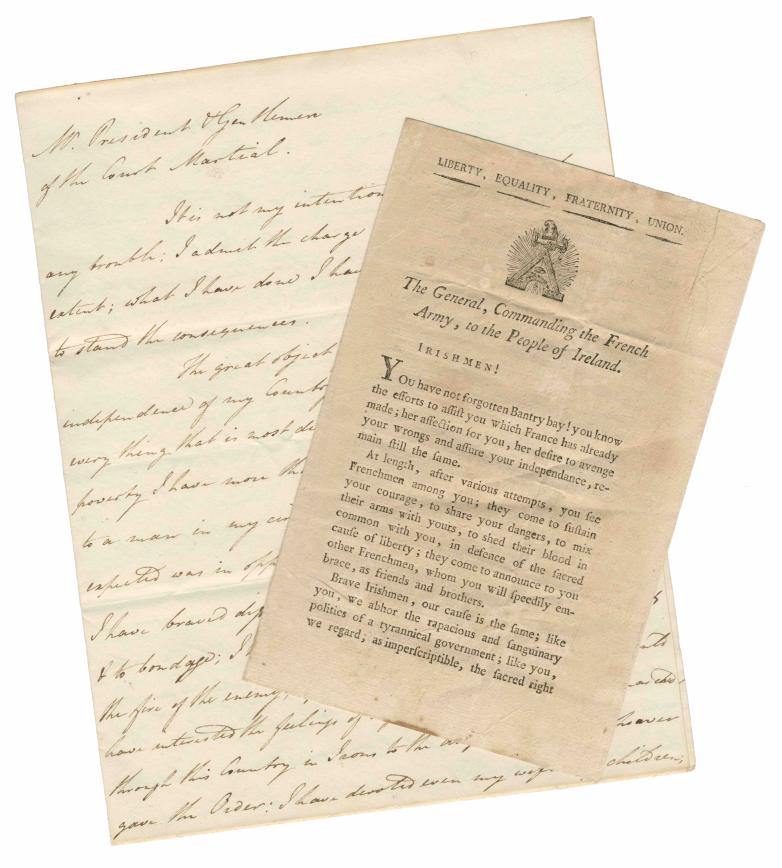 Mr. President & Gentlemen
of the Court Martial.
It is not my intention
any trouble: I admit the charge
extent; what I have done I have
to stand the consequences.
The great object
independence of my Country
every thing that is most
poverty I have more
to a man in my
expected was in
I have braved
& to bondage; I
the fire of the enemy,
have interested the feelings of
through this Country in Irons to the
gave the Order: I have devoted even my wife children;
LIBERTY, EQUALITY, FRATERNITY, UNION.
The General, Commanding the French
Army, to the People of Ireland.
IRISHMEN!
YOu have not forgotten Bantry bay! you know
the efforts to aſſiſt you which France has already
made; her affection for you, her deſire to avenge
your wrongs and aſſure your independance, re-
main ſtill the ſame.
At length, after various attempts, you ſee
Frenchmen among you; they come to ſuſtain
your courage, to ſhare your dangers, to mix
their arms with yours, to ſhed their blood in
common with you, in defence of the ſacred
cauſe of liberty; they come to announce to you
other Frenchmen, whom you will ſpeedily em-
brace, as friends and brothers.
Brave Iriſhmen, our cauſe is the ſame; like
you, we abhor the rapacious and ſanguinary
politics of a tyrannical government; like you,
we regard, as imperſcriptible, the ſacred right